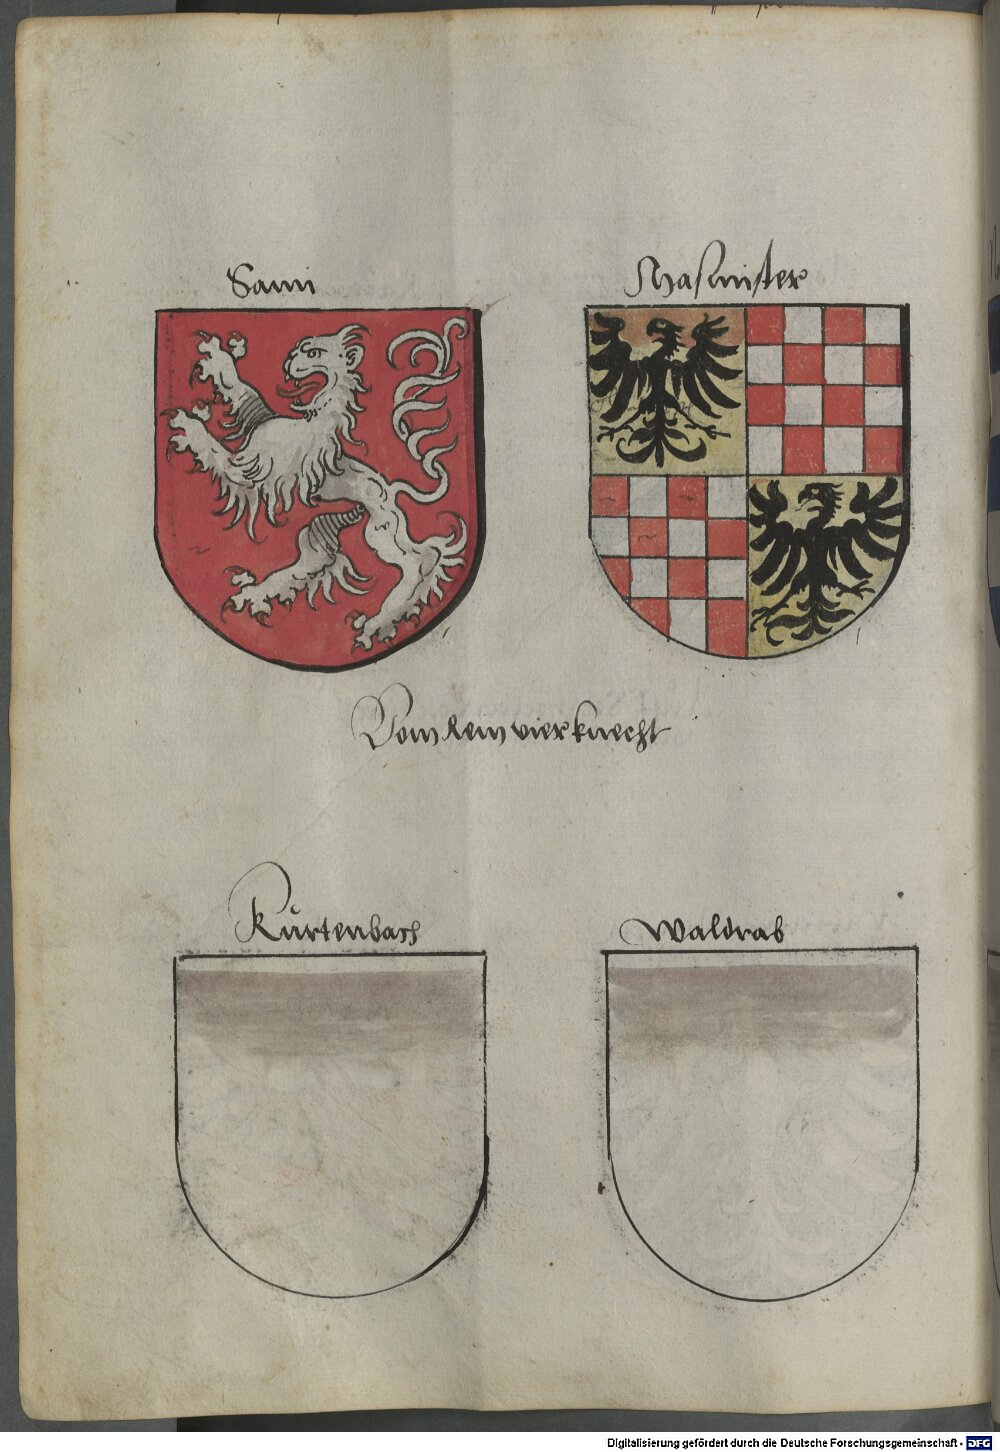 Sanni
Masmister
Vom Rein vier knecht
Kürtenbach
Waldrab
Digitalisierung gefördert durch die Deutsche Forschungsgemeinschaft - DFG